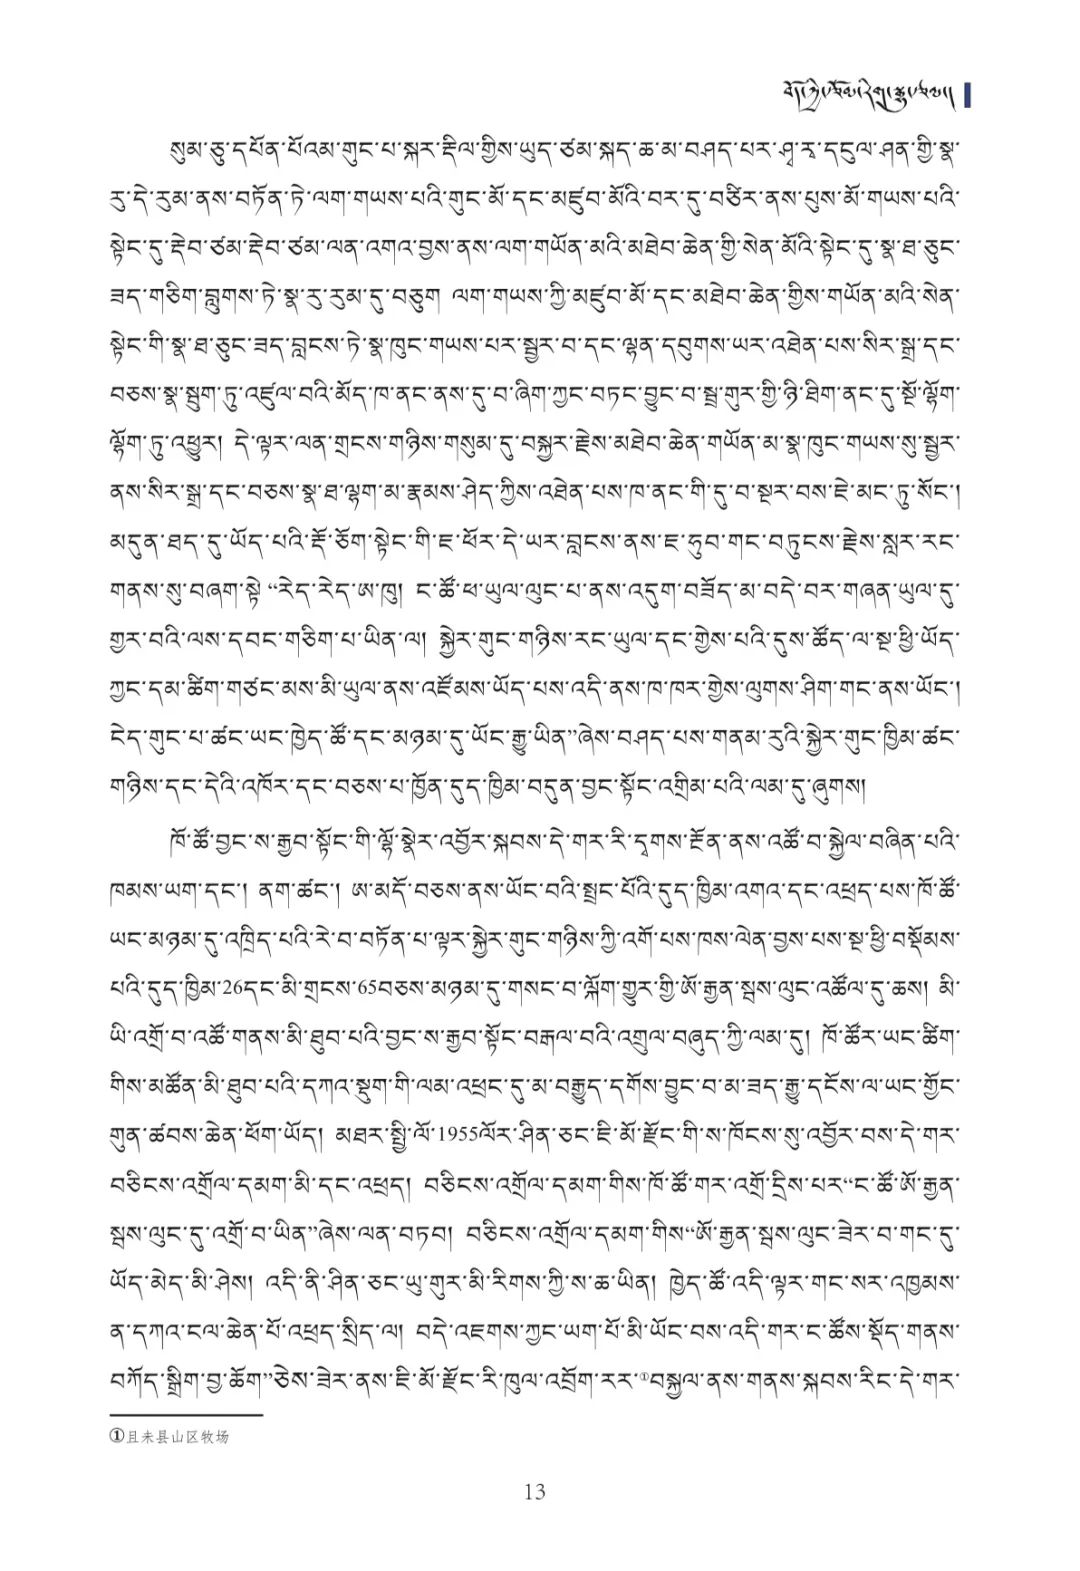 སུམ་ཅུ་དཔོན་པོའམ་གུང་པ་སྐར་རྡིལ་གྱིས་ཡུད་ཙམ་སྐད་ཆ་མ་བཤད་པར་ཤྭ་རྭ་དངུལ་ཤན་གྱི་སྣ་
རུ་དེ་རུམ་ནས་བཏོན་ཏེ་ལག་གཡས་པའི་གུང་མོ་དང་མཛུབ་མོའི་བར་དུ་བཙིར་ནས་པུས་མོ་གཡས་པའི་
སྟེང་དུ་རྡེབ་ཙམ་རྡེབ་ཙམ་ལན་འགའ་བྱས་ནས་ལག་གཡོན་མའི་མཐེབ་ཆེན་གྱི་སེན་མོའི་སྟེང་དུ་སྣ་ཐ་ཅུང་
ཟད་གཅིག་བླུགས་ཏེ་སྣ་རུ་རུམ་དུ་བཅུག ལག་གཡས་ཀྱི་མཛུབ་མོ་དང་མཐེབ་ཆེན་གྱིས་གཡོན་མའི་སེན་
སྟེང་གི་སྣ་ཐ་ཅུང་ཟད་བླངས་ཏེ་སྣ་ཁུང་གཡས་པར་སྦྱར་བ་དང་ལྷན་དབུགས་ཡར་འཐེན་པས་སིར་སྒྲ་དང་
བཅས་སྣ་སྦུག་ཏུ་འཛུལ་བའི་མོད་ཁ་ནང་ནས་དུ་བ་ཞིག་ཀྱང་བཏང་བྱུང་བ་སྦྲ་གུར་གྱི་ཉི་ཐིག་ནང་དུ་སྔོ་ལྷོག་
ལྷོག་ཏུ་འཕྱུར། དེ་ལྟར་ལན་གྲངས་གཉིས་གསུམ་དུ་བསྐྱར་རྗེས་མཐེབ་ཆེན་གཡོན་མ་སྣ་ཁུང་གཡས་སུ་སྦྱར་
ནས་སིར་སྒྲ་དང་བཅས་སྣ་ཐ་ལྷག་མ་རྣམས་ཤེད་ཀྱིས་འཐེན་པས་ཁ་ནང་གི་དུ་བ་སྔར་བས་ཇེ་མང་ཏུ་སོང་།
མདུན་ཐད་དུ་ཡོད་པའི་རྡོ་ཅོག་སྟེང་གི་ཇ་ཕོར་དེ་ཡར་བླངས་ནས་ཇ་ཧུབ་གང་བཏུངས་རྗེས་སླར་རང་
གནས་སུ་བཞག་སྟེ “རེད་རེད་ཨ་ཁུ། ང་ཚོ་ཕ་ཡུལ་ལུང་པ་ནས་འདུག་བཟོད་མ་བདེ་བར་གཞན་ཡུལ་དུ་
གྱར་བའི་ལས་དབང་གཅིག་པ་ཡིན་ལ། སྐྱེར་གུང་གཉིས་རང་ཡུལ་དང་གྱེས་པའི་དུས་ཚོད་ལ་སྔ་ཕྱི་ཡོད་
ཀྱང་དམ་ཚིག་གཙང་མས་མི་ཡུལ་ནས་འཛོམས་ཡོད་པས་འདི་ནས་ཁ་ཁར་གྱེས་ལུགས་ཤིག་གང་ནས་ཡོང་།
ངེད་གུང་པ་ཚང་ཡང་ཁྱེད་ཚོ་དང་མཉམ་དུ་ཡོང་རྒྱུ་ཡིན”ཞེས་བཤད་པས་གནམ་རུའི་སྐྱེར་གུང་ཁྱིམ་ཚང་
གཉིས་དང་དེའི་འཁོར་དང་བཅས་པ་ཁྱོན་དུད་ཁྱིམ་བདུན་བྱང་སྟོང་འགྲིམ་པའི་ལམ་དུ་ཞུགས།
ཁོ་ཚོ་བྱང་ས་རྒྱབ་སྟོང་གི་ལྷོ་སྣེར་འབྱོར་སྐབས་དེ་གར་རི་དྭགས་རྔོན་ནས་འཚོ་བ་སྐྱེལ་བཞིན་པའི་
ཁམས་ཡག་དང་། ནག་ཚང་། ཨ་མདོ་བཅས་ནས་ཡོང་བའི་སྤྲང་པོའི་དུད་ཁྱིམ་འགའ་དང་འཕྲད་པས་ཁོ་ཚོ་
ཡང་མཉམ་དུ་འཁྲིད་པའི་རེ་བ་བཏོན་པ་ལྟར་སྐྱེར་གུང་གཉིས་ཀྱི་འགོ་པས་ཁས་ལེན་བྱས་པས་སྔ་ཕྱི་བསྡོམས་
པའི་དུད་ཁྱིམ་26དང་མི་གྲངས་65བཅས་མཉམ་དུ་གསང་བ་ལྐོག་གྱུར་གྱི་ཨོ་རྒྱན་སྦས་ལུང་འཚོལ་དུ་ཆས། མི་
ཡི་འགྲོ་བ་འཚོ་གནས་མི་ཐུབ་པའི་བྱང་ས་རྒྱབ་སྟོང་བརྒལ་བའི་འགྲུལ་བཞུད་ཀྱི་ལམ་དུ། ཁོ་ཚོར་ཡང་ཚིག་
གིས་མཚོན་མི་ཐུབ་པའི་དཀའ་སྡུག་གི་ལམ་འཕྲང་དུ་མ་བརྒྱུད་དགོས་བྱུང་བ་མ་ཟད་རྒྱུ་དངོས་ལ་ཡང་གྱོང་
གུན་ཚབས་ཆེན་ཕོག་ཡོད། མཐར་སྤྱི་ལོ་1955ལོར་ཤིན་ཅང་ཇི་མོ་རྫོང་གི་ས་ཁོངས་སུ་འབྱོར་བས་དེ་གར་
བཅིངས་འགྲོལ་དམག་མི་དང་འཕྲད། བཅིངས་འགྲོལ་དམག་གིས་ཁོ་ཚོ་གར་འགྲོ་དྲིས་པར“ང་ཚོ་ཨོ་རྒྱན་
སྦས་ལུང་དུ་འགྲོ་བ་ཡིན”ཞེས་ལན་བཏབ། བཅིངས་འགྲོལ་དམག་གིས“ཨོ་རྒྱན་སྦས་ལུང་ཟེར་བ་གང་དུ་
ཡོད་མེད་མི་ཤེས། འདི་ནི་ཤིན་ཅང་ཡུ་གུར་མི་རིགས་ཀྱི་ས་ཆ་ཡིན། ཁྱེད་ཚོ་འདི་ལྟར་གང་སར་འཁྱམས་
ན་དཀའ་ངལ་ཆེན་པོ་འཕྲད་སྲིད་ལ། བདེ་འཇགས་ཀྱང་ཡག་པོ་མི་ཡོང་བས་འདི་གར་ང་ཚོས་སྡོད་གནས་
བཀོད་སྒྲིག་བྱ་ཆོག”ཅེས་ཟེར་ནས་ཇི་མོ་རྫོང་རི་ཁུལ་འབྲོག་རར་①བསྐྱལ་ནས་གནས་སྐབས་རིང་དེ་གར་
①且末县山区牧场
13